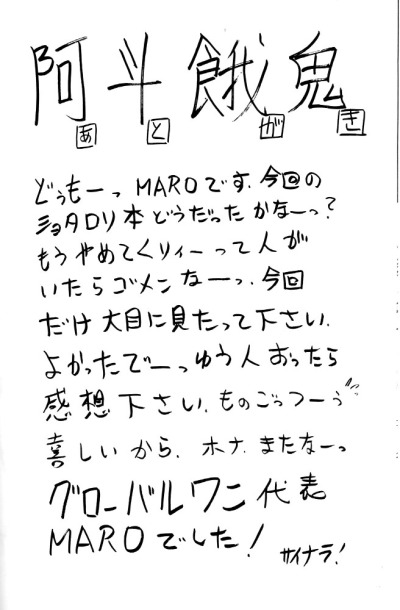 阿斗餓鬼
あとがき
どぅもーっ MAROです。今回の
ショタロリ本どうだったかなーっ?
もうやめてくりィーって人が
いたらゴメンなーっ。今回
だけ大目に見たって下さい。
よかったでーっゆう人おったら
感想下さい。ものごっつーぅ
喜しいから。ホナ。またなーっ
グローバルワン代表
MAROでした!
サイナラ!